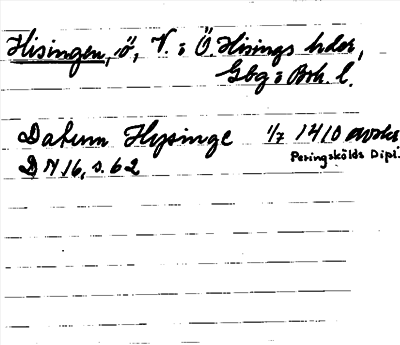 Hisingen, ö, V. o Ö. Hisings hder,
Gbg o Boh. l.
Datum Hysinge 1/7 1410 avskr
Peringskölds Dipl.
DN 16, s. 62